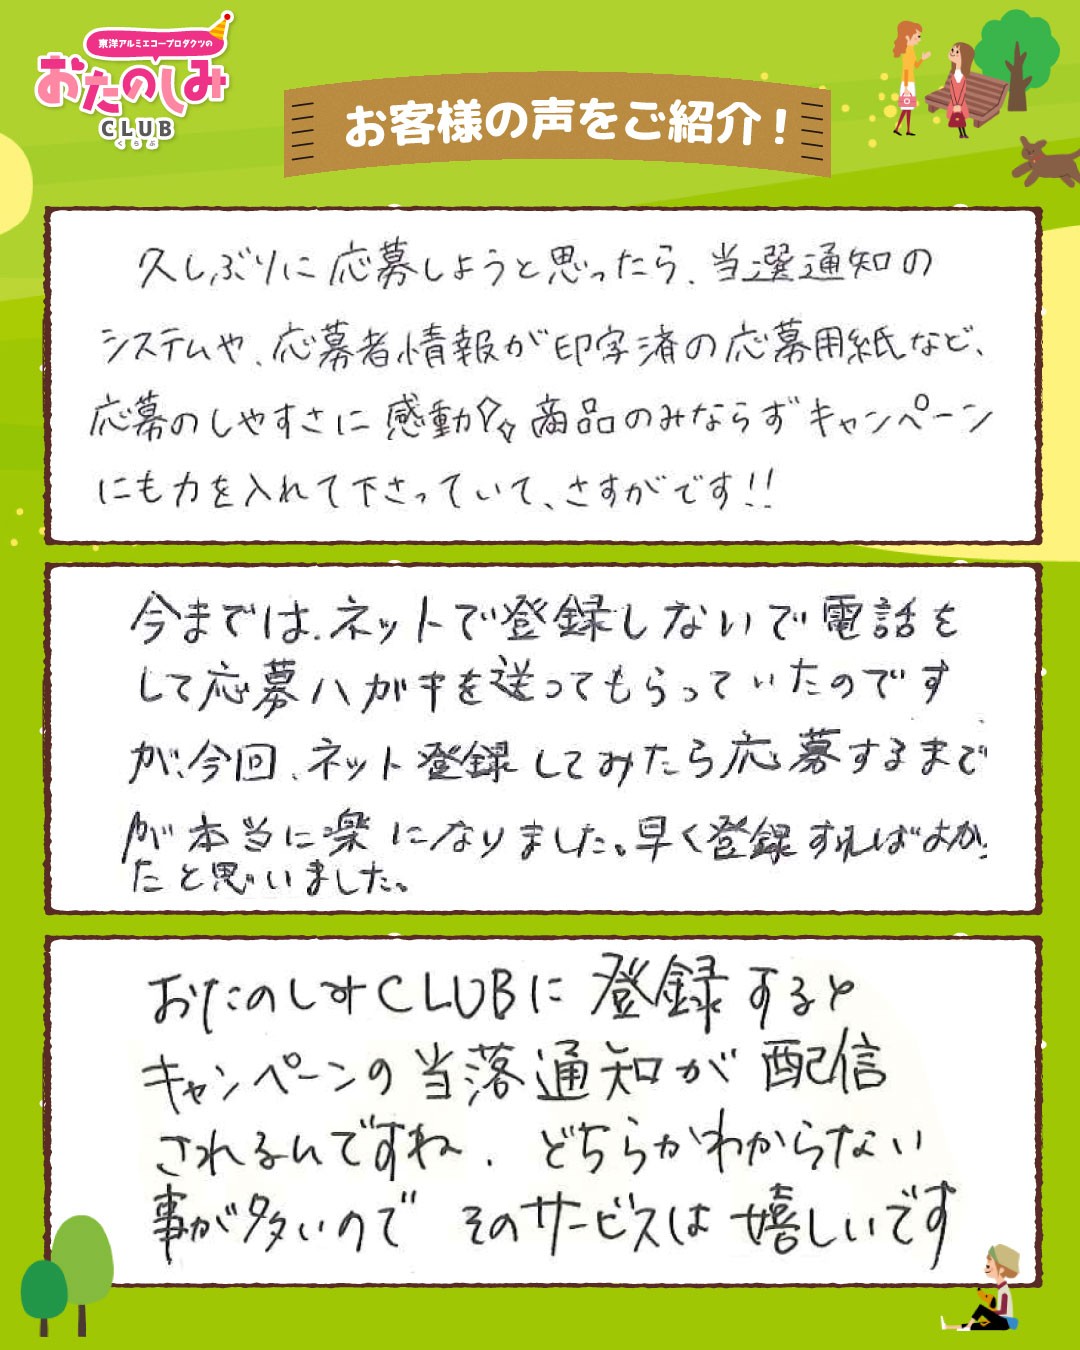 東洋アルミエコープロダクツの
おたのしみ
CLUB
くらぶ
お客様の声をご紹介!
久しぶりに応募しようと思ったら、当選通知の
システムや、応募者情報が印字済の応募用紙など、
応募のしやすさに感動 商品のみならずキャンペーン
にも力を入れて下さっていて、さすがです!!
今までは、ネットで登録しないで電話を
して応募ハガキを送ってもらっていたのです
が、今回、ネット登録してみたら応募するまで
が本当に楽になりました。早く登録すればよかっ
たと思いました。
おたのしみCLUBに登録すると
キャンペーンの当落通知が配信
されるんですね、どちらかわからない
事が多いので そのサービスは嬉しいです